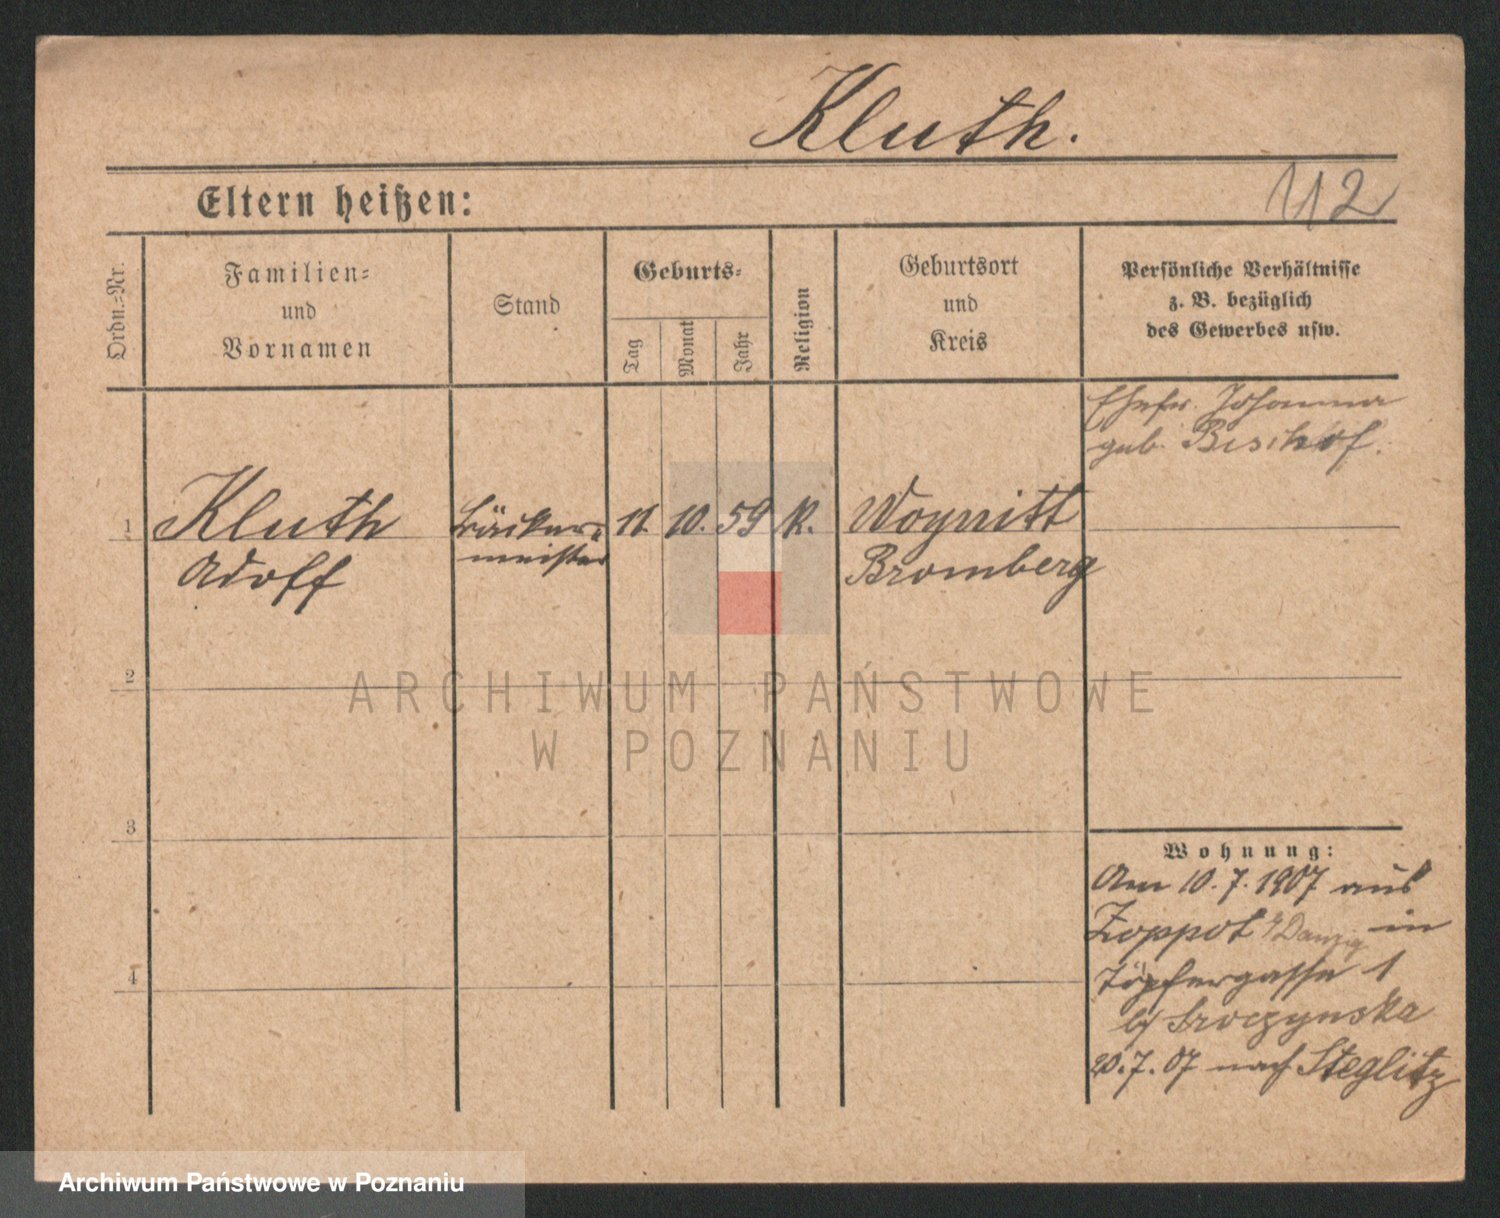 Kluth.
Eltern heißen:
Ordn.=Nr.
Familien=
und
Vornamen
Stand
Geburts=
Tag
Monat
Jahr
Religion
Geburtsort
und
Kreis
Persönliche Verhältnisse
z. B. bezüglich
des Gewerbes usw.
Ehefr. Johanna
geb. Bischof.
1 Kluth Bäcker= 11. 10. 59 K. Woynitt
Adolf meister Bromberg
2
3
4
Wohnung:
Am 10.7.1907 aus
Zoppot b/Danzig in
Töpfergasse 1
b/ Sroczynska
20.7.07 nach Steglitz
ARCHIWUM PAŃSTWOWE
W POZNANIU
Archiwum Państwowe w Poznaniu